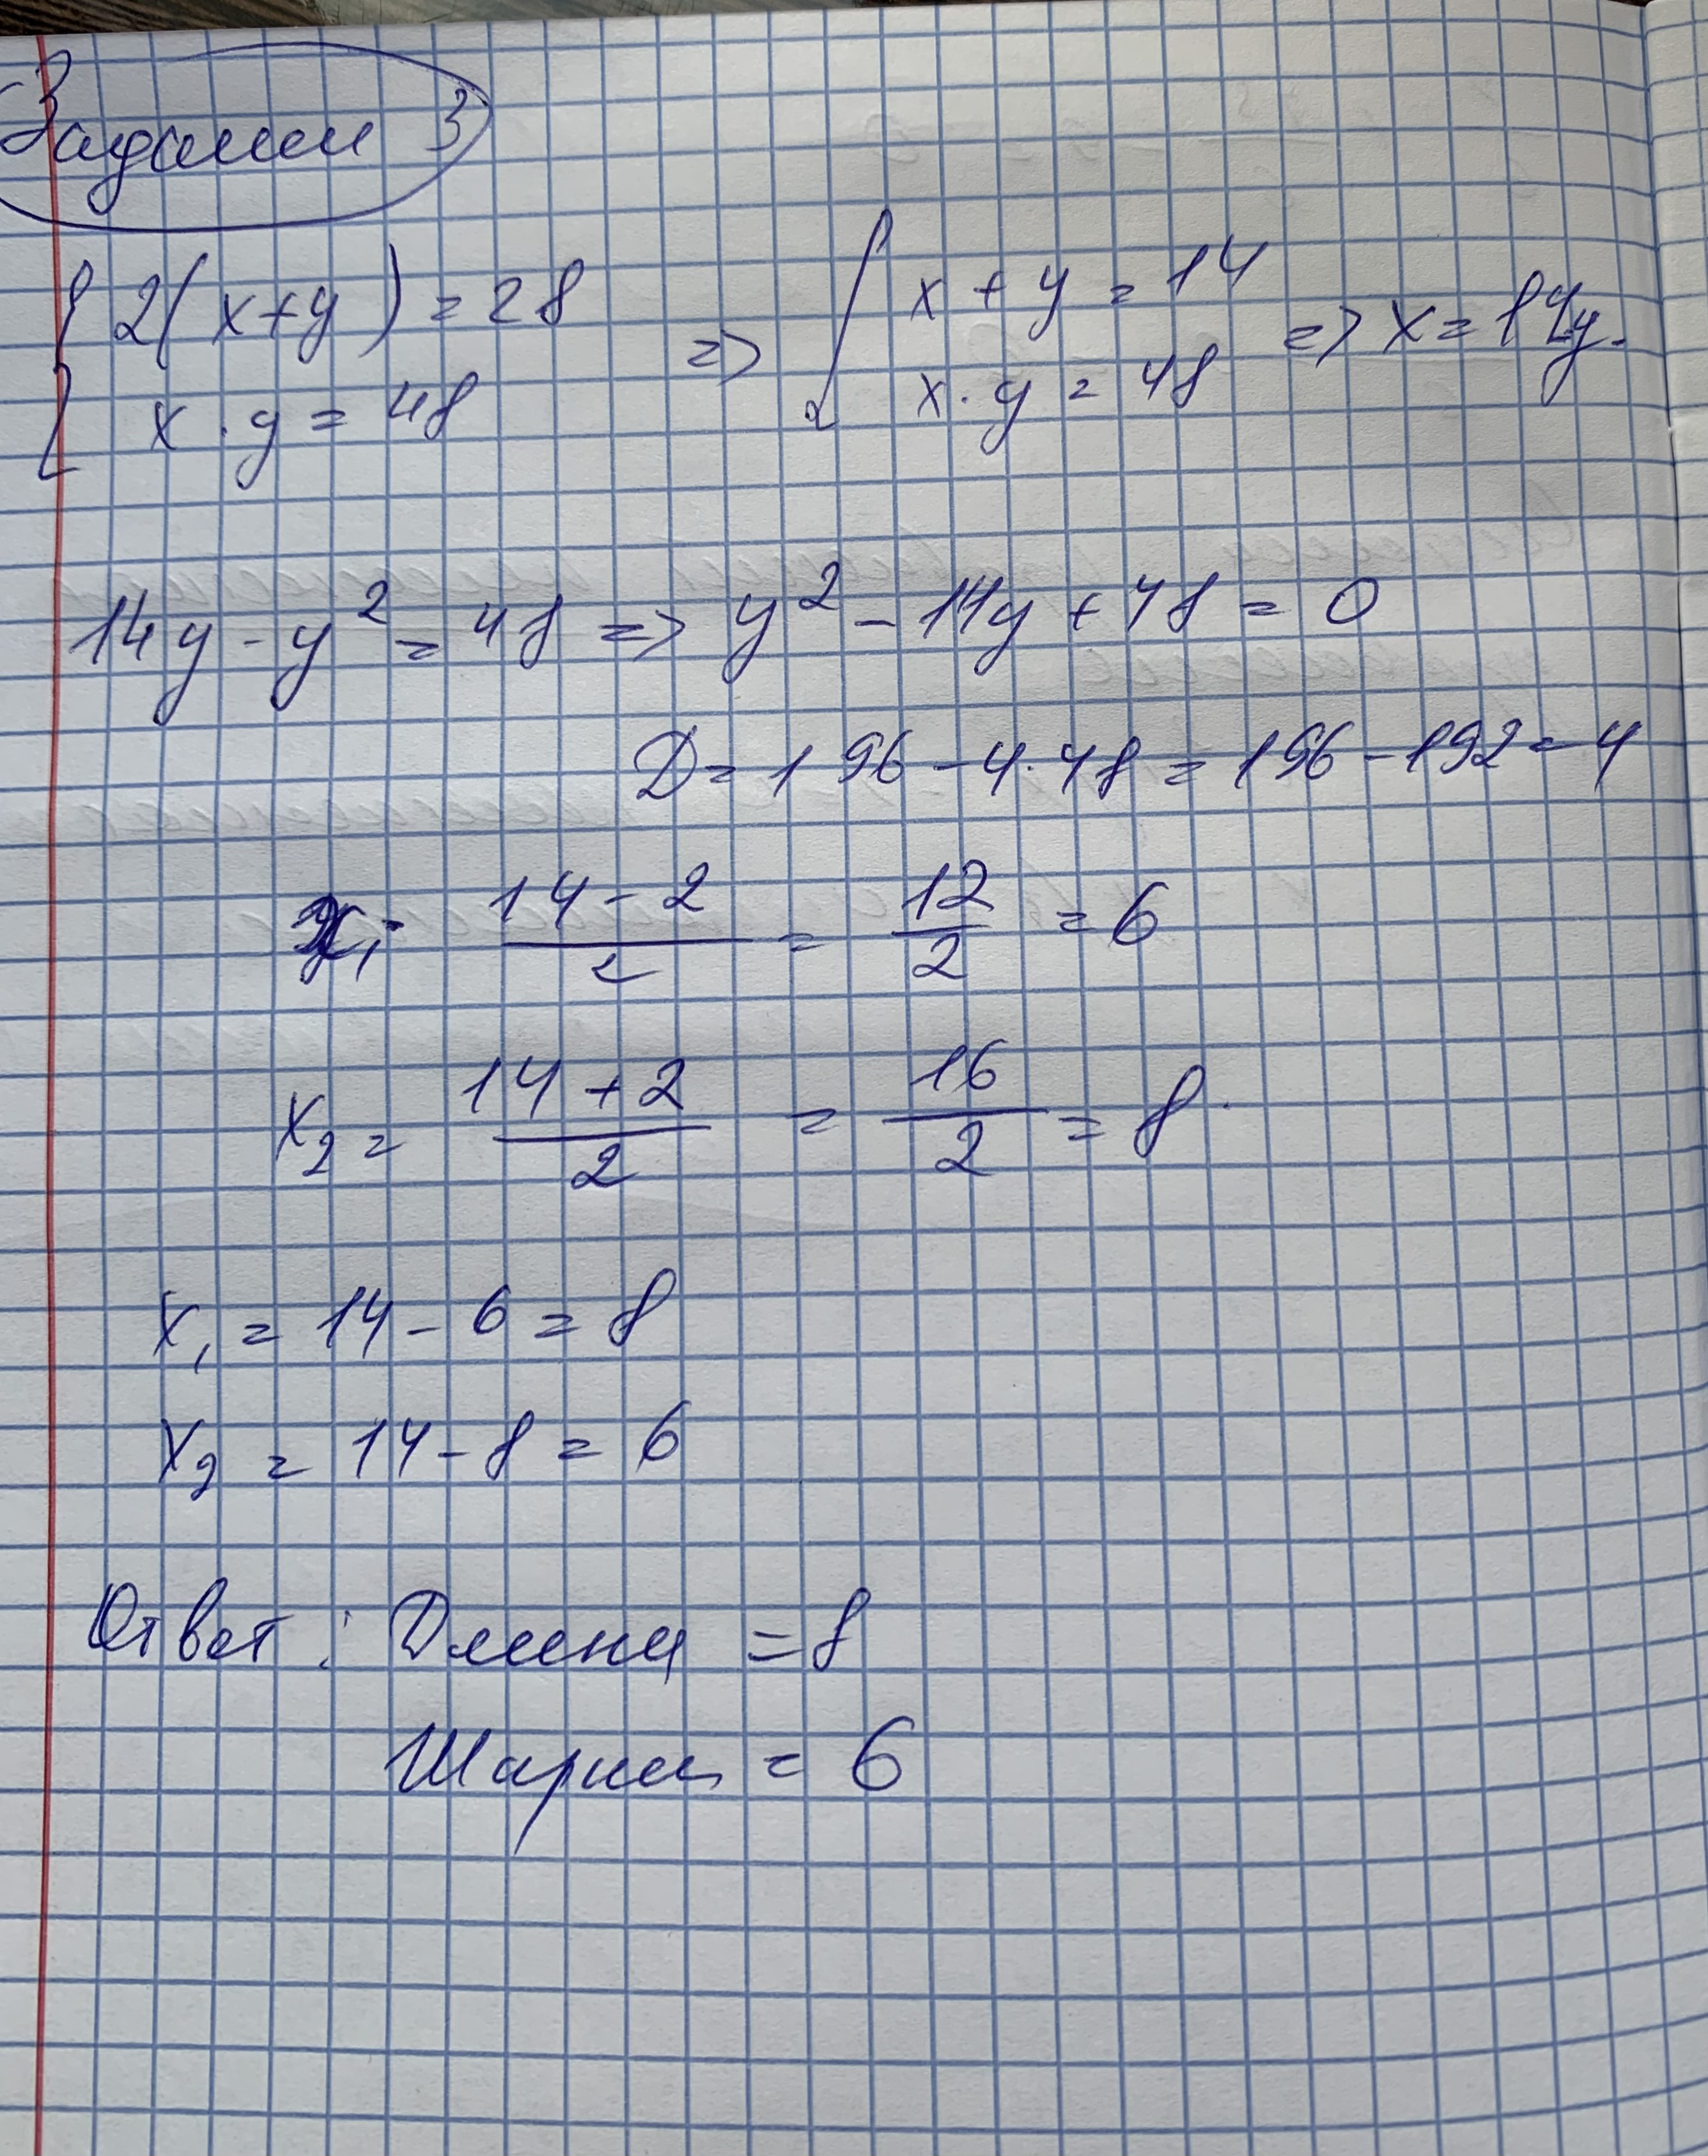 Задании 3
{ 2(x+y) = 28
x · y = 48
=> { x + y = 14
x · y = 48
=> x = 14y.
14y - y² = 48 => y² - 14y + 48 = 0
D = 196 - 4·48 = 196 - 192 = 4
x₁ = (14 - 2)/2 = 12/2 = 6
x₂ = (14 + 2)/2 = 16/2 = 8
x₁ = 14 - 6 = 8
x₂ = 14 - 8 = 6
Ответ : Длина = 8
= 6